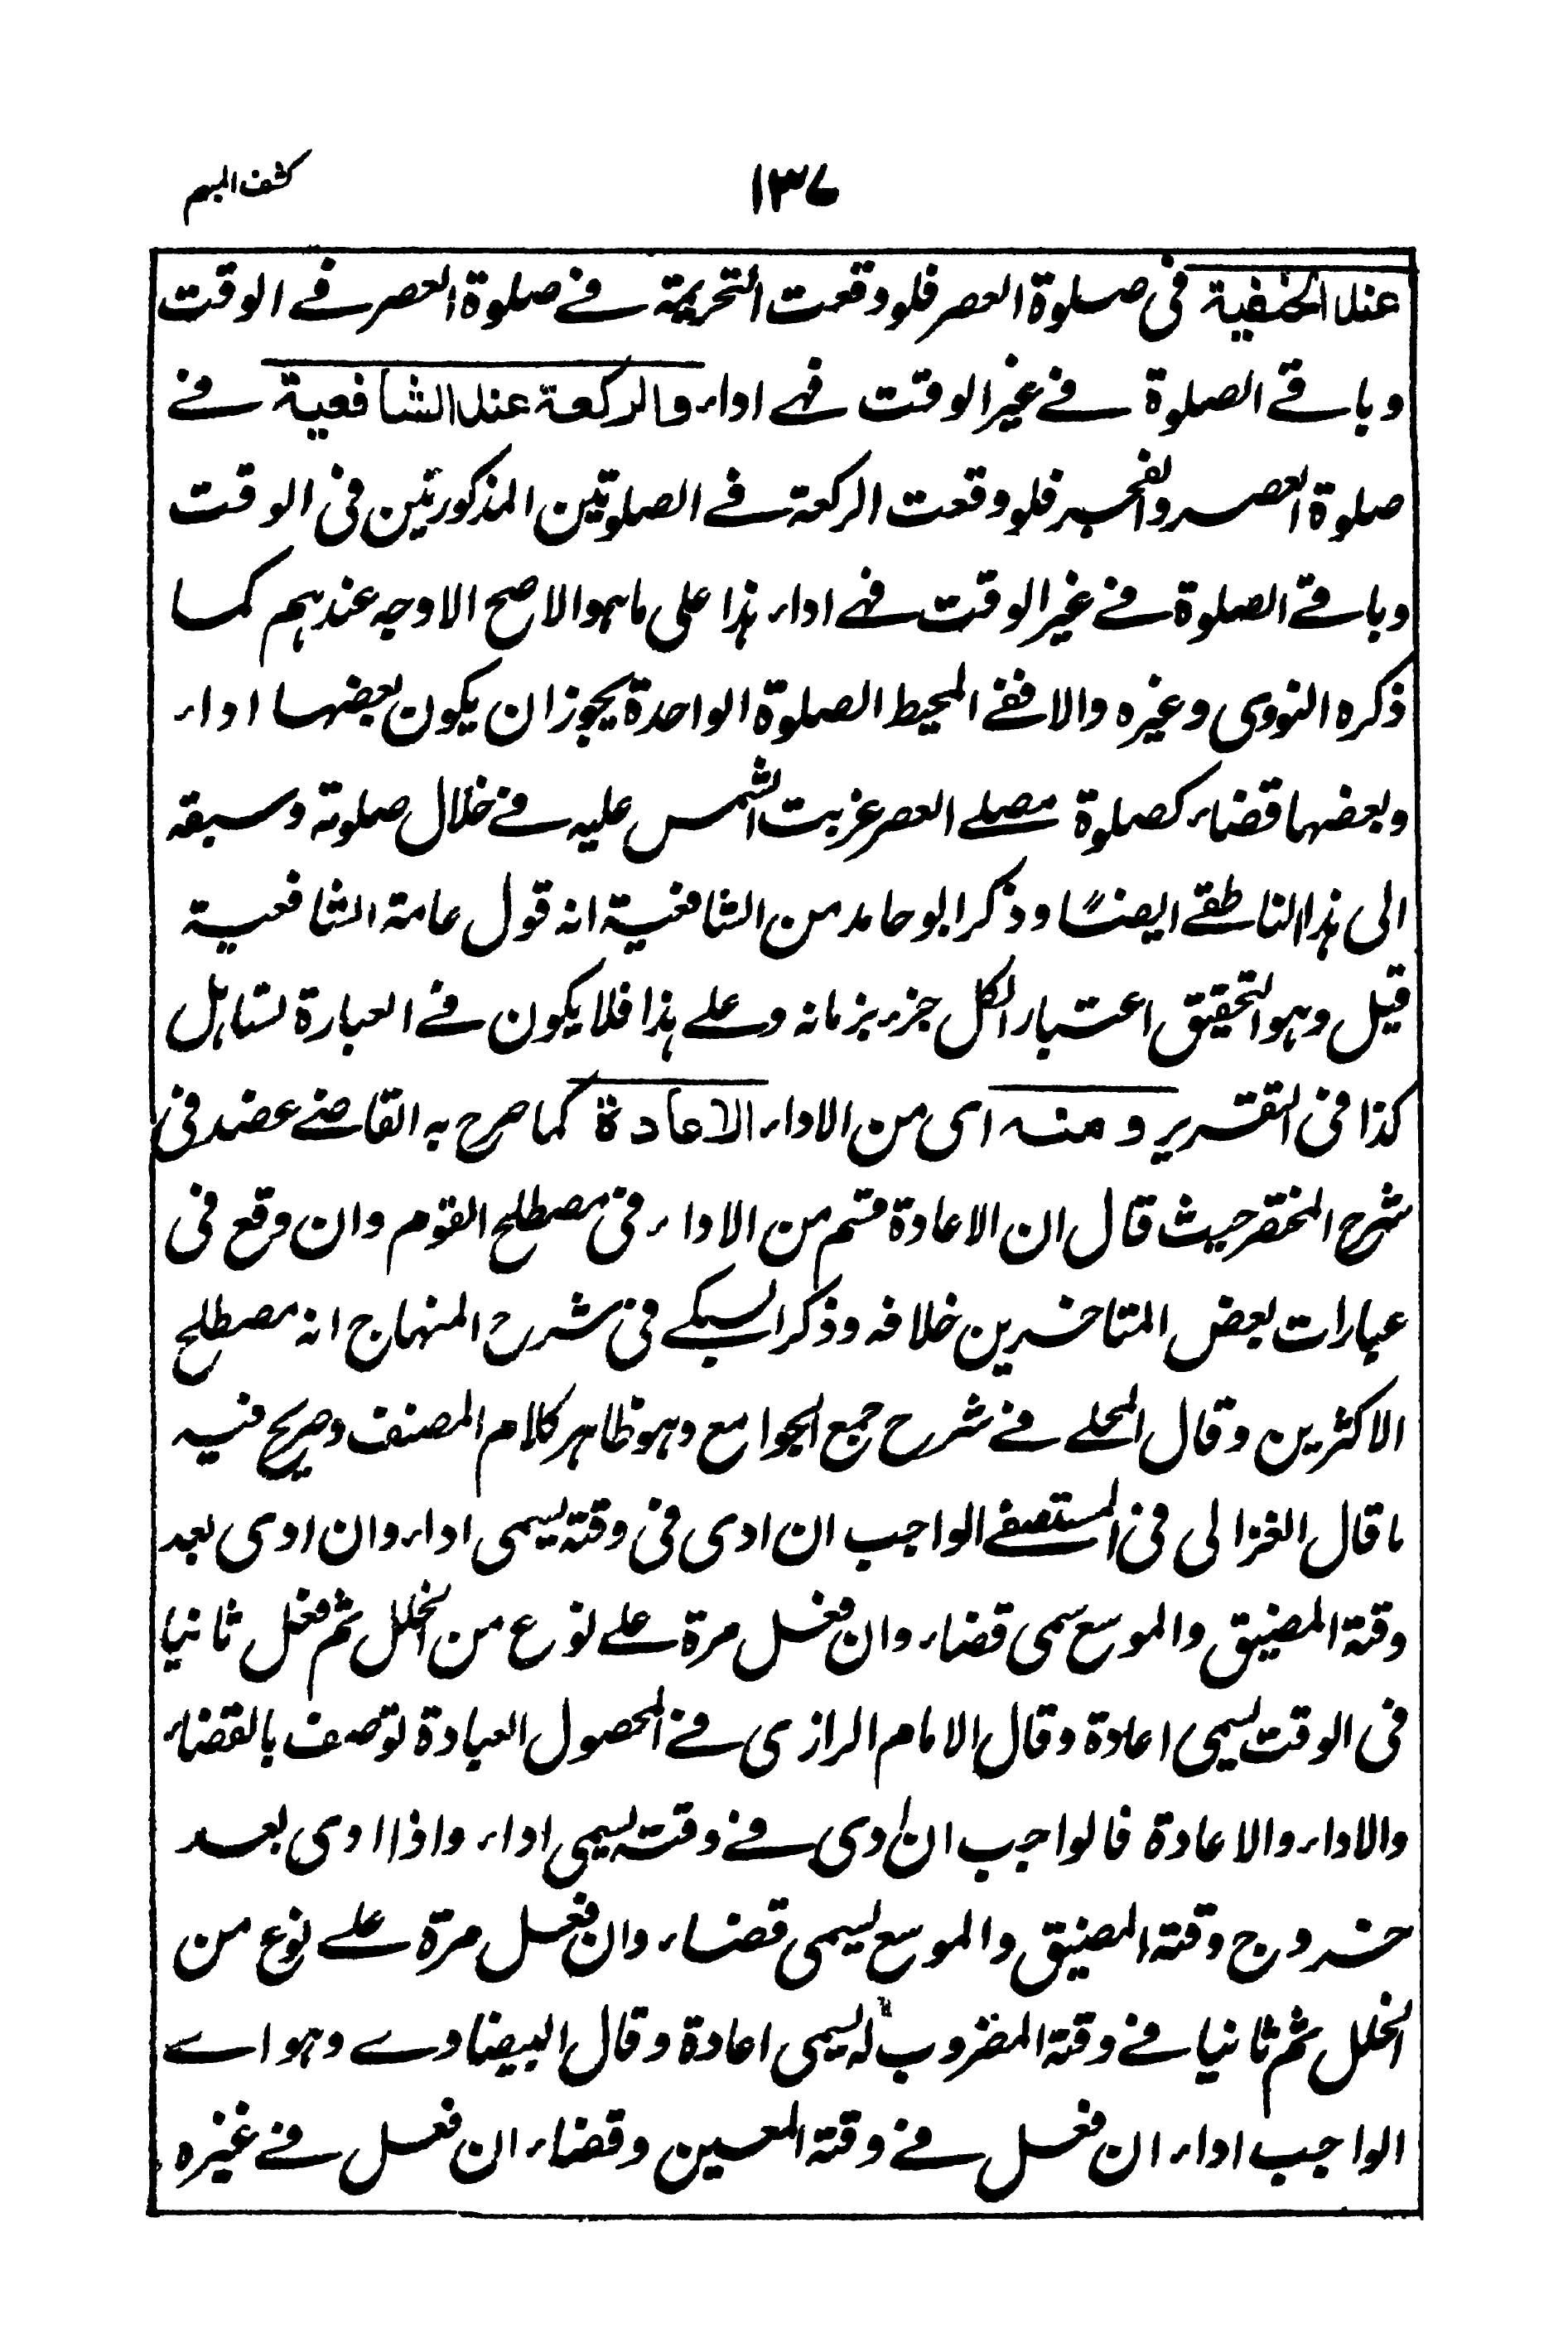 كشف المبهم
١٣٧
عند الحنفية فى صلوة العصر فلو وقعت التحريمة فے صلوة العصر فے الوقت
وباقے الصلوة فے غير الوقت فهے اداء والركعة عند الشافعية فے
صلوة العصر والفجر فلو وقعت الركعة فے الصلوتين المذكورتين فى الوقت
وباقے الصلوة فے غير الوقت فهے اداء هذا على ما هو الاصح الاوجه عندهم كما
ذكره النووى وغيره والا ففے المحيط الصلوة الواحدة يجوز ان يكون بعضها اداء
وبعضها قضاء كصلوة مصلے العصر غربت الشمس عليه فے خلال صلوته وسبقه
الى هذا الناطقے ايضًا وذكر ابو حامد من الشافعية انه قول عامة الشافعية
قيل وهو التحقيق اعتبارا لكل جزء بزمانه وعلے هذا فلا يكون فے العبارة تساهل
كذا فى التقرير ومنه اى من الاداء الاعادة كما صرح به القاضے عضد فى
شرح المختصر حيث قال ان الاعادة قسم من الاداء فى مصطلح القوم وان وقع فى
عبارات بعض المتاخرين خلافه وذكر السبكے فى شرح المنهاج انه مصطلح
الاكثرين وقال المحلے فے شرح جمع الجوامع وهو ظاهر كلام المصنف وصريح فيه
ما قال الغزالى فى المستصفے الواجب ان ادى فى وقته يسمى اداء وان ادى بعد
وقته المضيق والموسع سمى قضاء وان فعل مرة علے نوع من الخلل ثم فعل ثانيا
فى الوقت يسمى اعادة وقال الامام الرازى فے المحصول العبادة توصف بالقضاء
والاداء والاعادة فالواجب ان ادى فے وقته يسمى اداء واذا ادى بعد
خروج وقته المضيق والموسع يسمى قضاء وان فعل مرة علے نوع من
الخلل ثم ثانيا فے وقته المضروب له يسمى اعادة وقال البيضاوے وهو اے
الواجب اداء ان فعل فے وقته المعين وقضاء ان فعل فے غيره